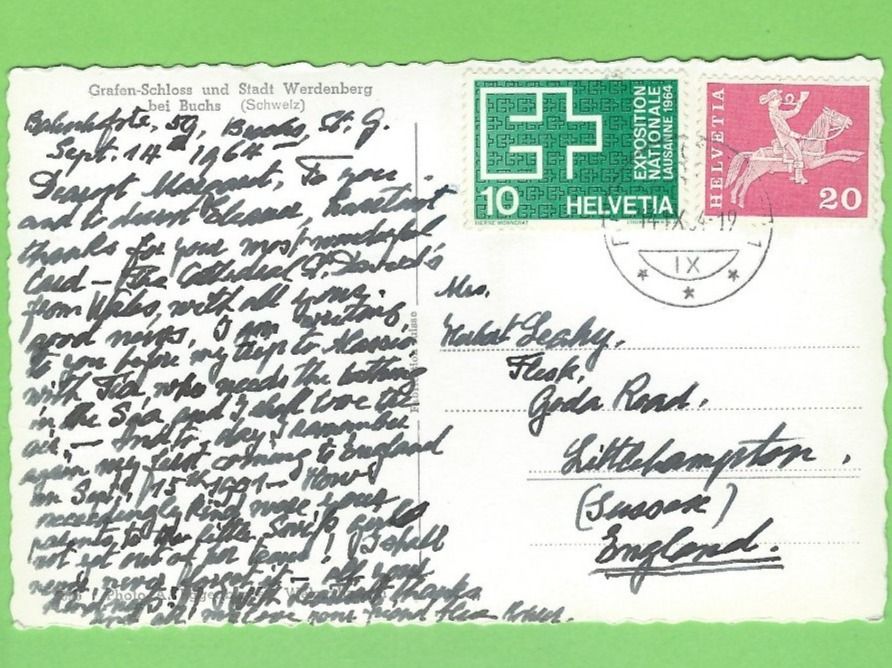 Grafen-Schloss und Stadt Werdenberg
bei Buchs (Schweiz)
Bahnhofstr. 59, Buchs, St. G.
Sept. 14th 1964
Dearest Margaret, To you
and to dearest Eleanor,
thanks for your most wonderful
Card — the Cathedral St. David's
from Wales, with all your
good news. I am writing
to you before my trip to Alassio
with Ida, who needs the bathing
in the Sea and I shall love the
air. — And to-day, I remember
again my first coming to England
on Sept. 15th — How
exceedingly kind were your
parents to the little Swiss girl
not yet out of her teens! I shall
never never forget it — all your
kindness. With thanks
and all my love your friend
EXPOSITION
NATIONALE
LAUSANNE 1964
10 HELVETIA
HELVETIA
20
14.IX.64-19
IX
Mrs.
Herbert Leahy,
Flesk,
Goda Road,
Littlehampton,
(Sussex)
England.